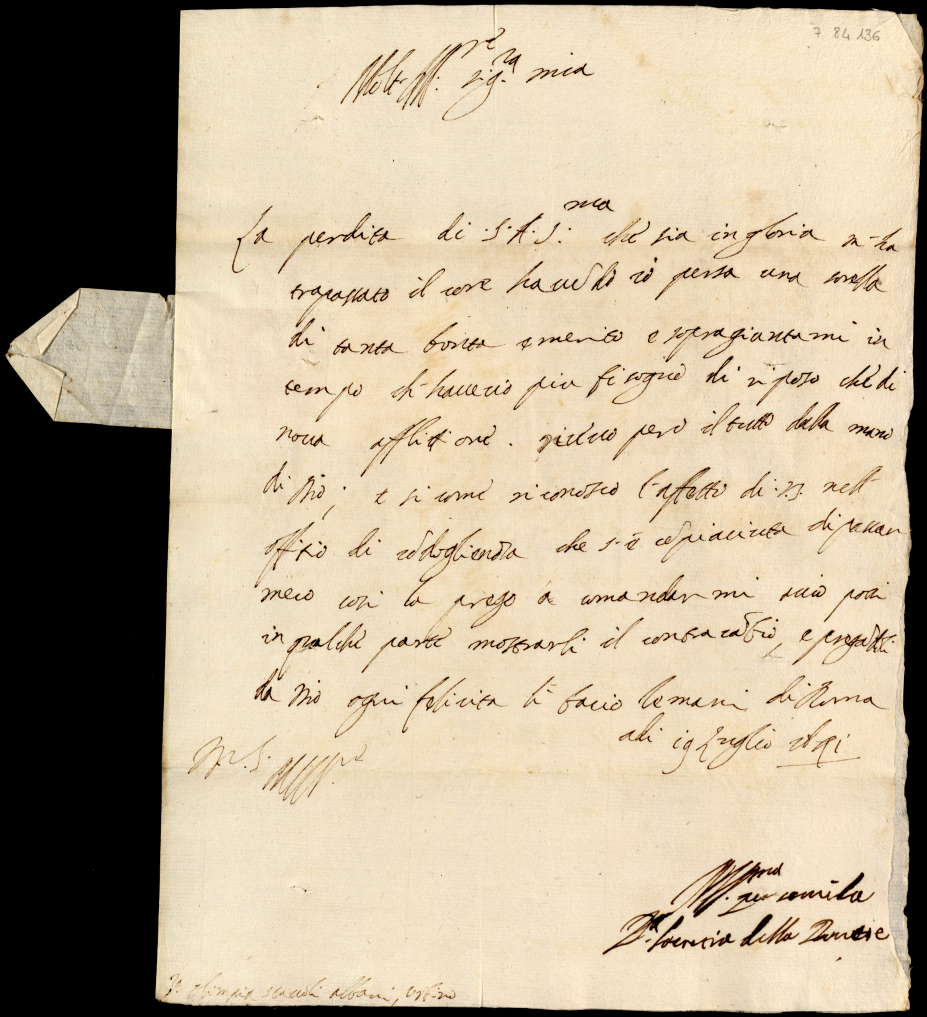 7 84 136
Molt' Ill.re sig.ra mia
La perdita di S. A. S.ma che sia in gloria m'ha
trapassato il core havedo io persa una sorella
di tanta bonta e merito e sopragiuntami in
tempo ch'havevo piu bisogno di riposo che di
nova afflitione. ricevo pero il tutto dalla mano
di Dio; e si come riconosco l'affetto di V.S. nell'
offitio di codoglienza che s'è copiaciuta di passar
meco cosi la prego a comandarmi acio possi
in qualche parte mostrarli il contracabio, e pregadoli
da Dio ogni felicita li bacio le mani di Roma
ali 19 Luglio
Di V.S. molt' Ill.re
Aff.ma per servirla
D. Lucretia della Rovere
S.ra Olimpia Staccoli Albani, Urbino